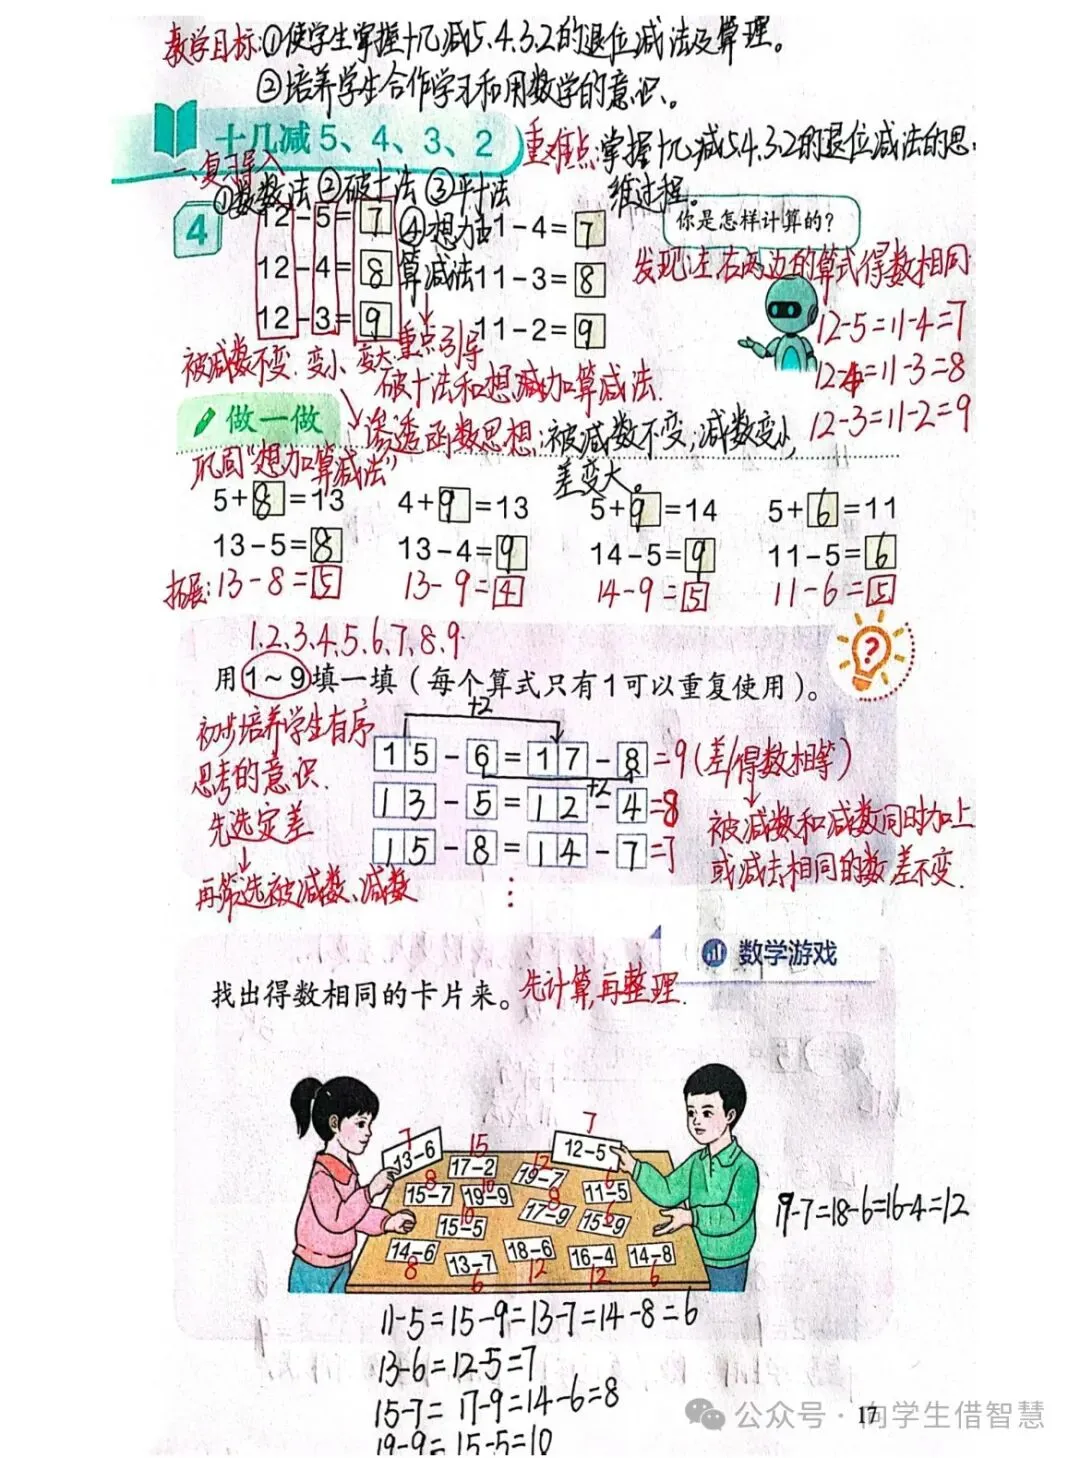 教学目标:①使学生掌握十几减5、4、3、2的退位减法及算理。
②培养学生合作学习和用数学的意识。
十几减 5、4、3、2
重难点:掌握十几减5、4、3、2的退位减法的思
维过程。
一、复习导入
①数数法 ②破十法 ③平十法
④想加
算减法
4
12-5=7
12-4=8
12-3=9
11-4=7
11-3=8
11-2=9
你是怎样计算的?
发现:左右两边的算式得数相同
12-5=11-4=7
12-4=11-3=8
12-3=11-2=9
被减数不变. 变小、变大.
重点引导
破十法和想加算减法.
渗透函数思想:被减数不变;减数变小,
差变大。
做一做
巩固"想加算减法"
5+8=13 4+9=13 5+9=14 5+6=11
13-5=8 13-4=9 14-5=9 11-5=6
拓展:13-8=5 13-9=4 14-9=5 11-6=5
1、2、3、4、5、6、7、8、9.
用1~9填一填(每个算式只有1可以重复使用)。
初步培养学生有序
思考的意识.
先选定差
再筛选被减数、减数
+2
15-6=17-8=9(差/得数相等)
+2
13-5=12-4=8
15-8=14-7=7
⋮
被减数和减数同时加上
或减去相同的数差不变.
数学游戏
找出得数相同的卡片来。先计算,再整理.
13-6 7
17-2 15
19-7 12
12-5 7
15-7 8
19-9 10
17-9 8
11-5 6
15-5 10
15-9 6
14-6 8
13-7 6
18-6 12
16-4 12
14-8 6
19-7=18-6=16-4=12
11-5=15-9=13-7=14-8=6
13-6=12-5=7
15-7=17-9=14-6=8
19-9=15-5=10
17
公众号·向学生借智慧